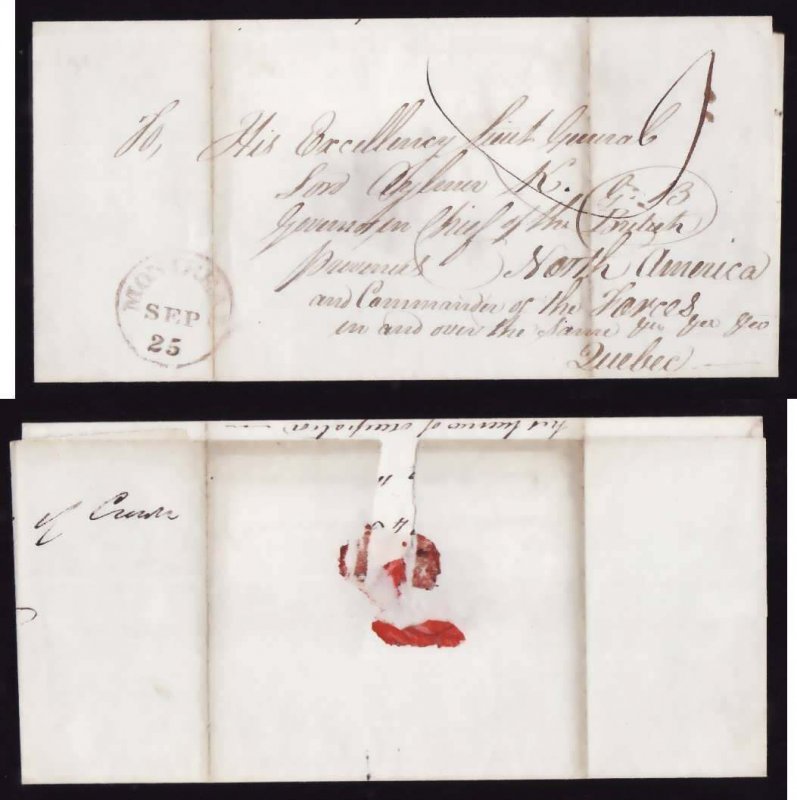 To, His Excellency Lieut General
Lord Aylmer K. G: C: B
Governor in Chief of the British
Provinces North America
and Commander of the Forces
in and over the Same &c &c &c
Quebec
MONTREAL
SEP
25
of Crown